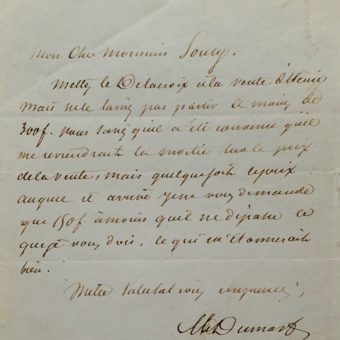 Mon Cher Monsieur Souty.
Mettez le Delacroix à la vente
mais ne le laissez pas partir à moins de
300f. vous savez qu'il a été convenu qu'il
me reviendrait la moitié sur le prix
de la vente, mais quelque soit le prix
auquel il arrive je ne vous demande
que 150f à moins qu'il ne dépasse ce
que je vous dois, ce qui m'étonnerait
bien.
Mille